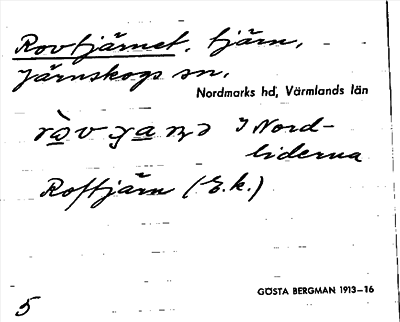 Rovtjärnet, tjärn,
Järnskogs sn.
Nordmarks hd, Värmlands län
I Nord-
liderna
Roftjärn (E.k.)
5
GÖSTA BERGMAN 1913–16